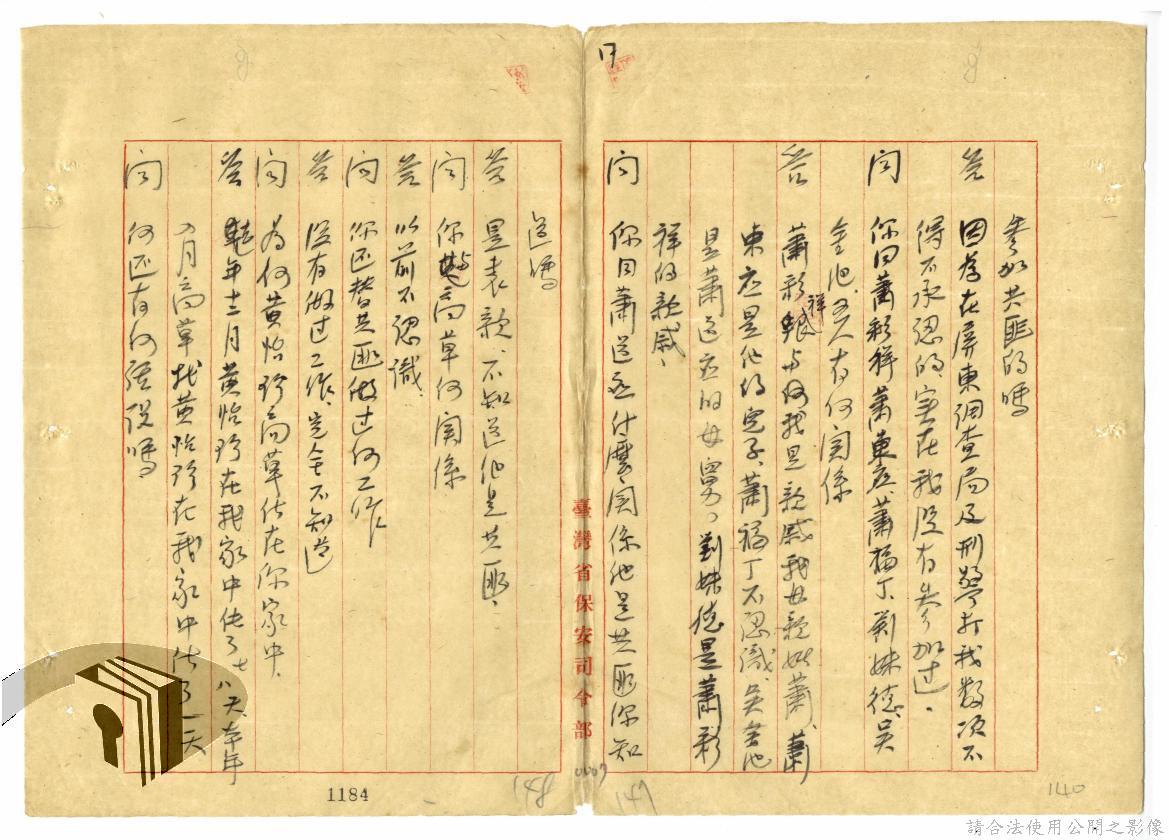 參加共匪的嗎
答 因為在屏東調查局及刑警打我数次不
得不承認的、实在我沒有參加过。
问 你同蕭彩祥蕭東应、蕭福丁、劉妹德、吳
金池、五人有何関係
答 蕭彩祥与我是親戚我母親姓蕭、蕭
東应是他的兒子、蕭福丁不認識、吳金池
是蕭道应的母舅、劉妹德是蕭彩
祥的親戚、
问 你同蕭道应什麼関係他是共匪你知
道嗎
答 是表親、不知道他是共匪、
问 你與高草何関係
答 以前不認識、
问 你还替共匪做过何工作
答 沒有做过工作、完全不知道
问 為何黃怡珍高草住在你家中、
答 去年十二月黃怡珍在我家中住了七八天、本年
八月高草找黃怡珍在我家中住了一天
问 你还有何話說嗎
臺灣省保安司令部
1184
140
請合法使用公開之影像